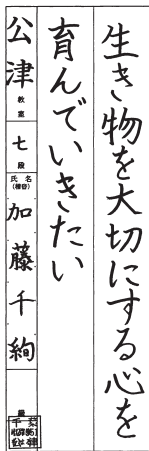 生き物を大切にする心を
育んでいきたい
公津教室 七段 氏名(雅号) 加藤千絢